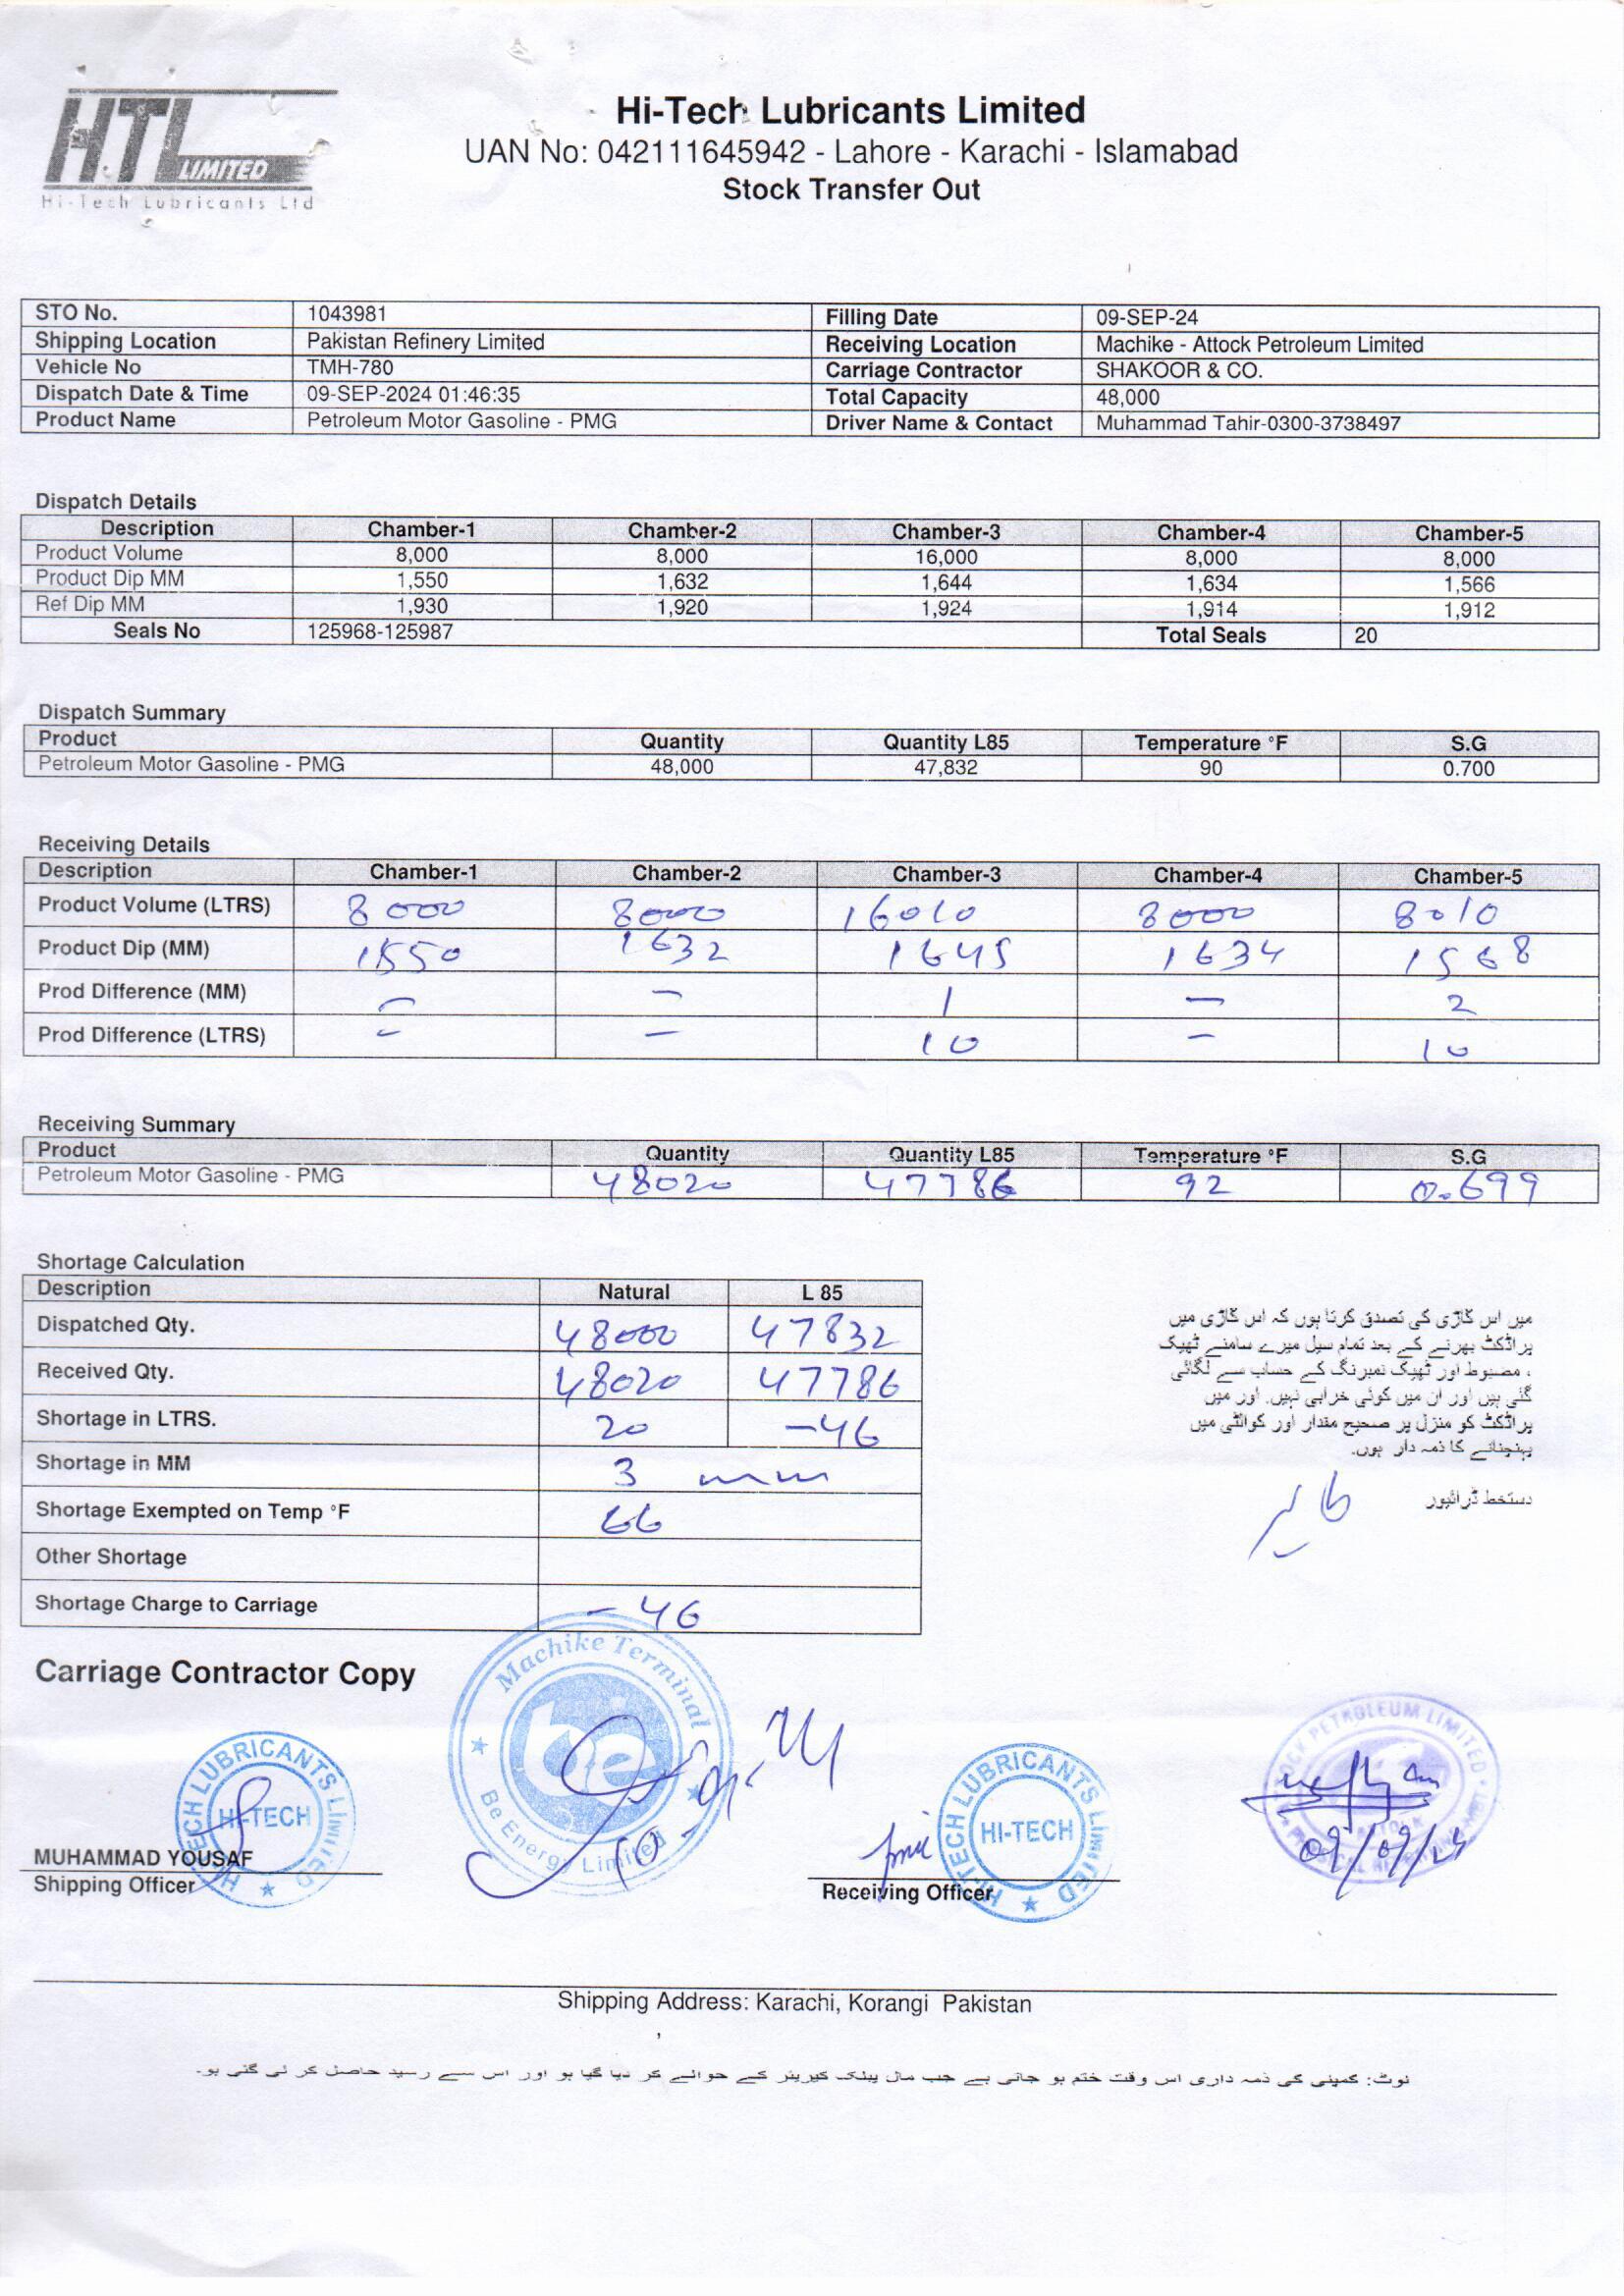 HTL LIMITED
Hi-Tech Lubricants Ltd
Hi-Tech Lubricants Limited
UAN No: 042111645942 - Lahore - Karachi - Islamabad
Stock Transfer Out
STO No. 1043981 Filling Date 09-SEP-24
Shipping Location Pakistan Refinery Limited Receiving Location Machike - Attock Petroleum Limited
Vehicle No TMH-780 Carriage Contractor SHAKOOR & CO.
Dispatch Date & Time 09-SEP-2024 01:46:35 Total Capacity 48,000
Product Name Petroleum Motor Gasoline - PMG Driver Name & Contact Muhammad Tahir-0300-3738497
Dispatch Details
Description Chamber-1 Chamber-2 Chamber-3 Chamber-4 Chamber-5
Product Volume 8,000 8,000 16,000 8,000 8,000
Product Dip MM 1,550 1,632 1,644 1,634 1,566
Ref Dip MM 1,930 1,920 1,924 1,914 1,912
Seals No 125968-125987 Total Seals 20
Dispatch Summary
Product Quantity Quantity L85 Temperature °F S.G
Petroleum Motor Gasoline - PMG 48,000 47,832 90 0.700
Receiving Details
Description Chamber-1 Chamber-2 Chamber-3 Chamber-4 Chamber-5
Product Volume (LTRS) 8000 8000 16010 8000 8010
Product Dip (MM) 1550 1632 1645 1634 1568
Prod Difference (MM) - - 1 - 2
Prod Difference (LTRS) - - 10 - 10
Receiving Summary
Product Quantity Quantity L85 Temperature °F S.G
Petroleum Motor Gasoline - PMG 48020 47786 92 0.699
Shortage Calculation
Description Natural L 85
Dispatched Qty. 48000 47832
Received Qty. 48020 47786
Shortage in LTRS. 20 -46
Shortage in MM 3 mm
Shortage Exempted on Temp °F 66
Other Shortage
Shortage Charge to Carriage -46
میں اس گاڑی کی تصدق کرتا ہوں کہ اس گاڑی میں
پراڈکٹ بھرنے کے بعد تمام سیل میرے سامنے ٹھیک
، مضبوط اور ٹھیک نمبرنگ کے حساب سے لگائی
گئی ہیں اور ان میں کوئی خرابی نہیں. اور میں
پراڈکٹ کو منزل پر صحیح مقدار اور کوالٹی میں
پہنچنانے کا ذمہ دار ہوں.
دستخط ڈرائیور
طاہر
Carriage Contractor Copy
Machike Terminal
be
Be Energy Limited
HI-TECH LUBRICANTS LIMITED
HI-TECH
MUHAMMAD YOUSAF
Shipping Officer
HI-TECH LUBRICANTS LIMITED
HI-TECH
Receiving Officer
ATTOCK PETROLEUM LIMITED
09/09/24
Shipping Address: Karachi, Korangi Pakistan
نوٹ: کمپنی کی ذمہ داری اس وقت ختم ہو جاتی ہے جب مال پبلک کیریئر کے حوالے کر دیا گیا ہو اور اس سے رسید حاصل کر لی گئی ہو۔